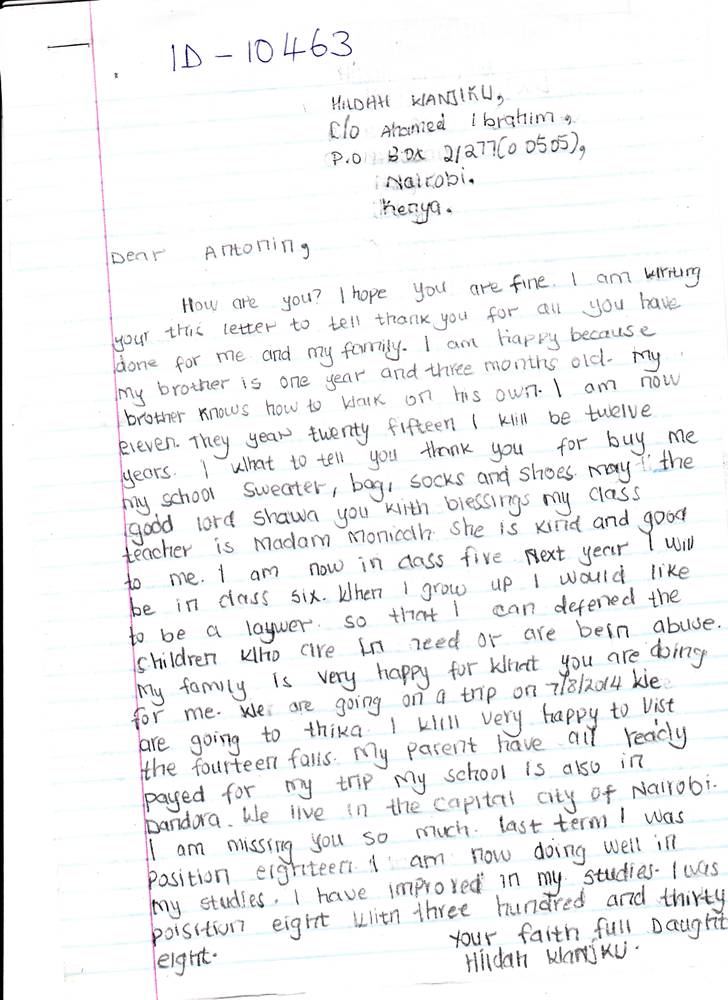 ID - 10463
HILDAH WANJIKU,
C/o Ahamed Ibrahim,
P.O Box 21277(00505),
Nairobi.
Kenya.
Dear Antonin,
How are you? I hope you are fine. I am writing
your this letter to tell thank you for all you have
done for me and my family. I am happy because
my brother is one year and three months old. My
brother knows how to walk on his own. I am now
eleven. They year twenty fifteen I will be twelve
years. I what to tell you thank you for buy me
my school sweater, bag, socks and shoes. may the
good lord shawa you with blessings my class
teacher is Madam Monicah. She is kind and good
to me. I am now in class five Next year I will
be in class six. When I grow up I would like
to be a laywer. so that I can defened the
children who are in need or are bein abuse.
My family is very happy for what you are doing
for me. We are going on a trip on 7/8/2014 We
are going to thika. I will very happy to vist
the fourteen falls. My parent have all ready
payed for my trip My school is also in
Dandora. We live in the capital city of Nairobi.
I am missing you so much. last term I was
position eighteen. I am now doing well in
my studies. I have improved in my studies. I was
poisition eight with three hundred and thirty
eight.
Your faith full Daught
Hildah Wanjku.